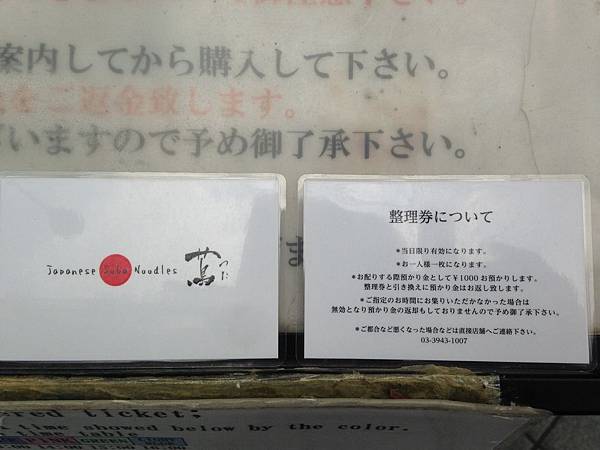 案内してから購入して下さい。
をご返金致します。
いますので予め御了承下さい。
Japanese Soba Noodles 蔦 つた
整理券について
*当日限り有効になります。
*お一人様一枚になります。
*お配りする際預かり金として¥1000お預かりします。
整理券と引き換えに預かり金はお返し致します。
*ご指定のお時間にお集りいただかなかった場合は
無効となり預かり金の返却もしておりませんので予め御了承下さい。
*ご都合など悪くなった場合などは直接店舗へご連絡下さい。
03-3943-1007
ticket;
time showed below by the color.
time table
PINK GREEN
14:00 15:00 16:00